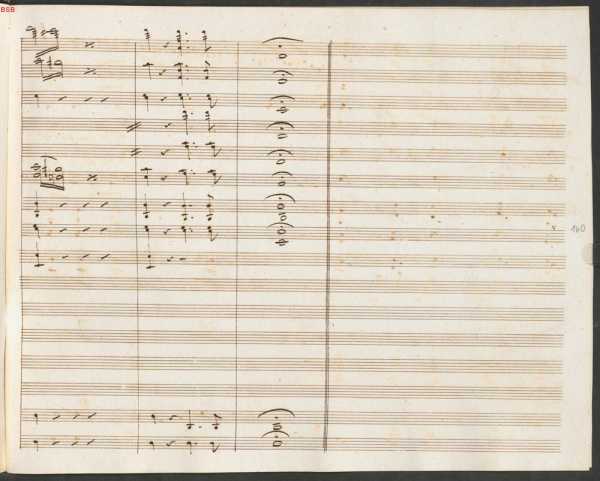 BSB
140